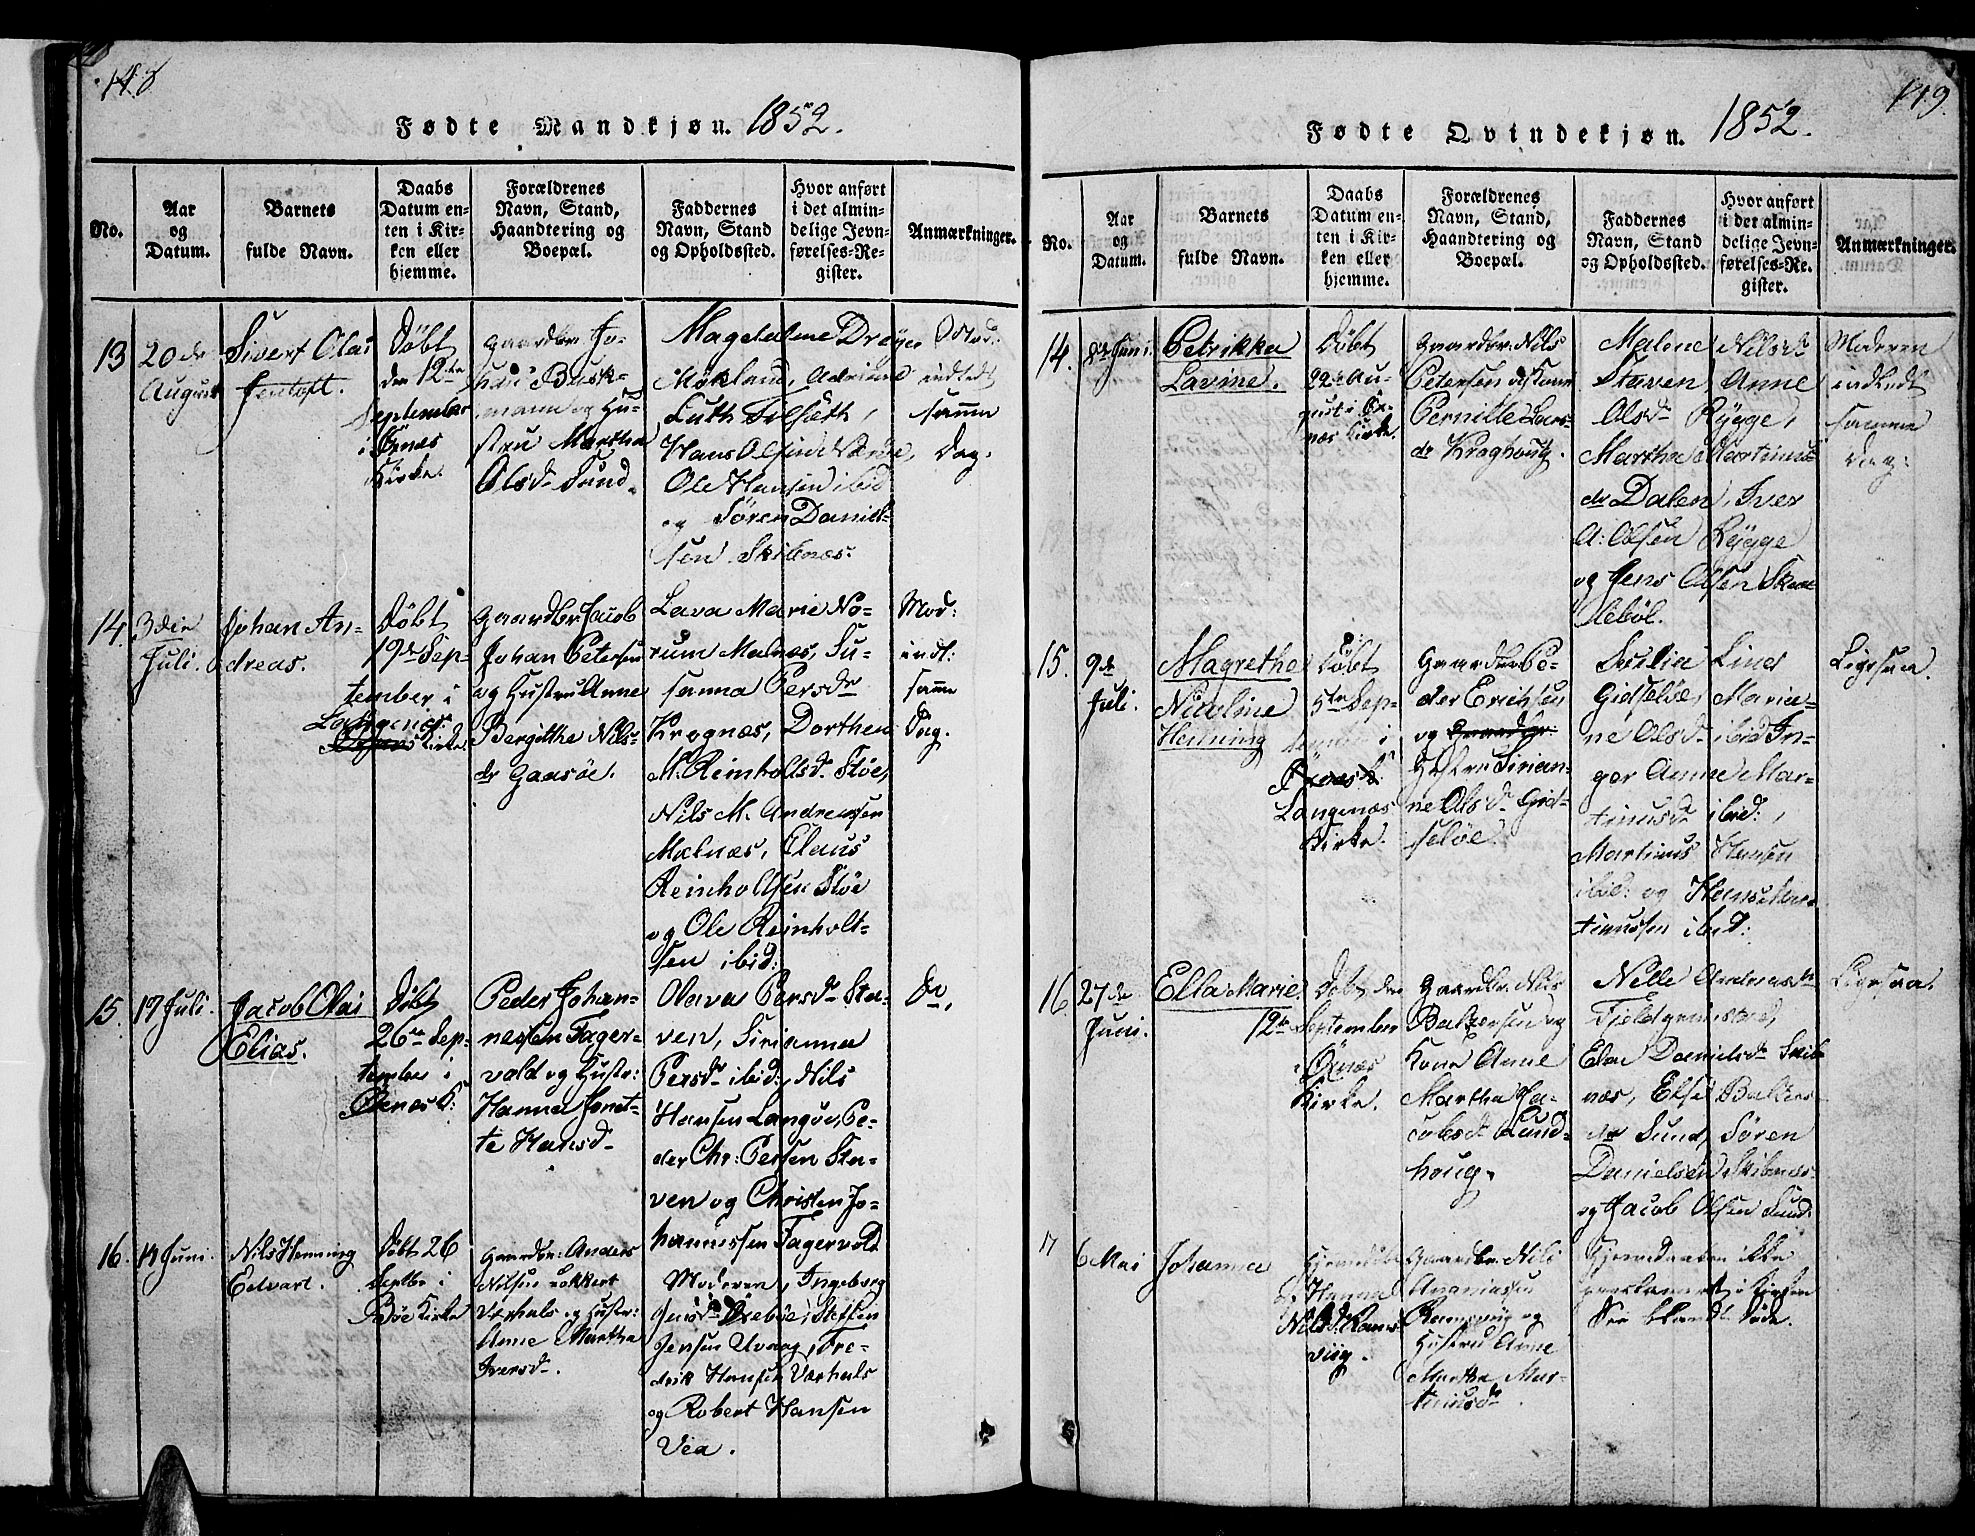 148
Fødte Mandkjøn. 1852.
No.
Aar
og
Datum.
Barnets
fulde Navn.
Daabs
Datum en-
ten i Kir-
ken eller
hjemme.
Forældrenes
Navn, Stand,
Haandtering og
Boepæl.
Faddernes
Navn, Stand
og Opholdssted.
Hvor anført
i det almin-
delige Jevn-
førelses-Re-
gister.
Anmærkninger.
13
20de
August
Sivert Olai
Jentoft.
Døbt
den 12te
September
i Öxnes
Kirke.
Gaardbr. Jo-
Busk-
mann og Hu-
stru Martha
Olsdr Sund.
Magdalene Dreyer
Mökland,
Hans Olsen
Ole Hansen ibid
og Søren Daniel-
sen Skibnæs.
Mod:
indledt
samme
Dag.
14.
3die
Juli.
Johan An-
dreas.
Döbt
19de Sep-
tember i
Langenes
Kirke
Gaardbr Jacob
Johan Petersen
og Hustru Anne
Bergitthe Nils-
dr Gaasöe.
Lava Marie No-
rum Malnæs, Su-
sanna Persdr
Krognæs, Dorthea
M. Reinholtsdr Stöe,
Nils M. Andreassen
Malnæs, Claus
Reinholtsen Stöe
og Ole Reinholt-
sen ibid:
Mod:
indl:
samme
Dag.
15.
17 Juli.
Jacob Olai
Elias.
Döbt
26de Sep-
tember i
Öxnæs K:
Peder Johan-
nessen Fager-
vold og Hustr:
Hanna Jenet-
te Hansdr
Olava Persdr Sta-
ven, Sirianna
Persdr ibid:, Nils
Hansen Langöe, Pe-
der Chr: Persen Sta-
ven og Christen Jo-
hannessen Fagervold
Do.
16.
14 Juni.
Nils Henning
Edvart.
Döbt 26
Septbr i
Böe Kirke
Gaardbr: Anders
Nilsen Lokkert
Værhals og Hustr:
Anne Martha
Iversdr.
Moderen, Ingeborg
Jensdr
Jensen Uvaag, Fre-
drik Hansen Værhals
og Robert Hansen
Vea.
149.
Fødte Qvindekjøn. 1852.
No.
Aar
og
Datum.
Barnets
fulde Navn.
Daabs
Datum en-
ten i Kir-
ken eller
hjemme.
Forældrenes
Navn, Stand,
Haandtering og
Boepæl.
Faddernes
Navn, Stand
og Opholdssted.
Hvor anført
i det almin-
delige Jevn-
førelses-Re-
gister.
Anmærkninger.
14.
Juni
Petrikka
Lavine.
Döbt
22de Au-
gust i Öx-
næs Kirke.
Gaardbr. Nils
Petersen og Kone
Pernille Lars-
dr Kraghoug.
Malene Nilsdr
Staven Anne
Olsdr Rygge,
Martha Martinus-
dr Dalen, Iver
A: Olsen Rygge
og Jens Olsen Skaa-
leböl.
Moderen
indledt
samme
Dag:
15.
9de
Juli.
Magrethe
Nicoline
Henning
Döbt
5te Sep-
tember i
Öxnæs K.
Langenæs
Kirke.
Gaardbr Pe-
der Erichsen
og
Hustru Sirian-
ne Olsdr Gid-
selöe.
Sesilia Lind
Gidselöe, Maria-
ne Olsdr ibid In-
ger Anne Mar-
tinusdr ibid:,
Martinus Hansen
ibid: og Hans Mar-
tinussen ibid:
Ligesaa.
16.
27de
Juni.
Ella Marie.
Döbt den
12te September
i Öxnæs
Kirke.
Gaardbr. Nils
Baltzersen og
Kone Anne
Martha Ja-
cobsdr Lund-
houg.
Nelle Andreasdr
Fjeldgrimstad,
Elen Danielsdr Skib-
næs, Else Baltzers-
dr Sund, Søren
Danielsen Skibnæs
og Jacob Olsen Sund.
Ligesaa.
17
6 Mai
Johanna
Hjemmedöbt
af Hanna
Nilsdr Rams-
viig.
Gaardbr Nils
Ananiassen
Ramsviig og
Hustru Anne
Martha Mar-
tinusdr.
Hjemmedaaben ikke
i Kirken
See blandt Döde.